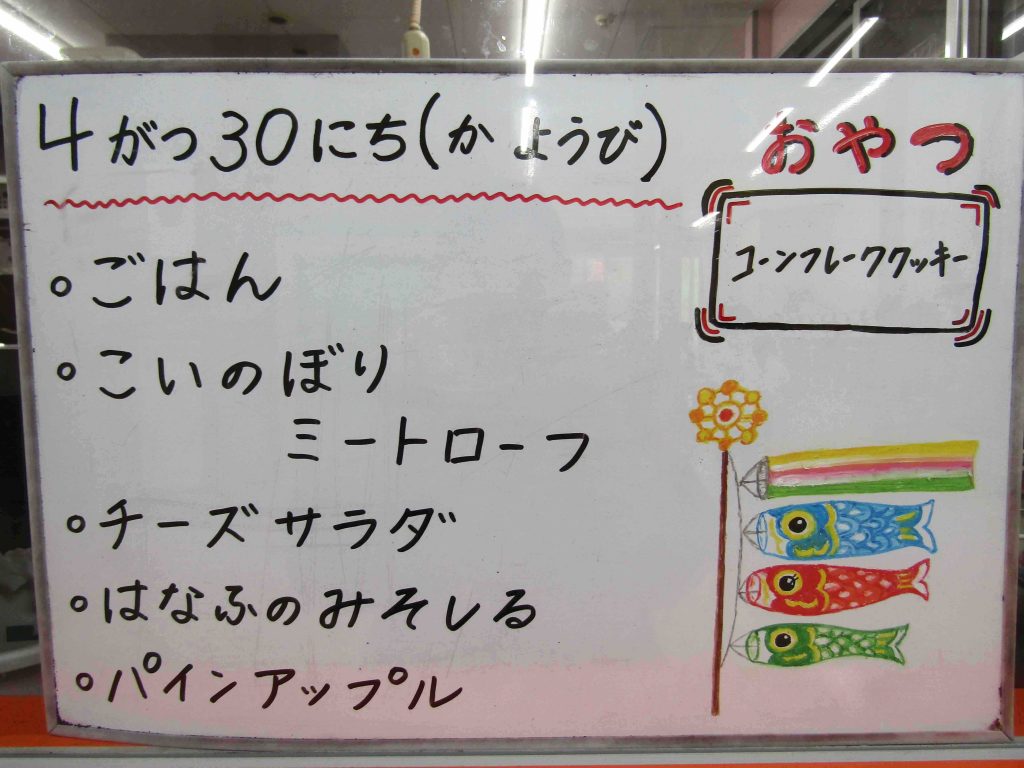 4がつ30にち(かようび)
おやつ
コーンフレーククッキー
・ごはん
・こいのぼり
ミートローフ
・チーズサラダ
・はなふのみそしる
・パインアップル